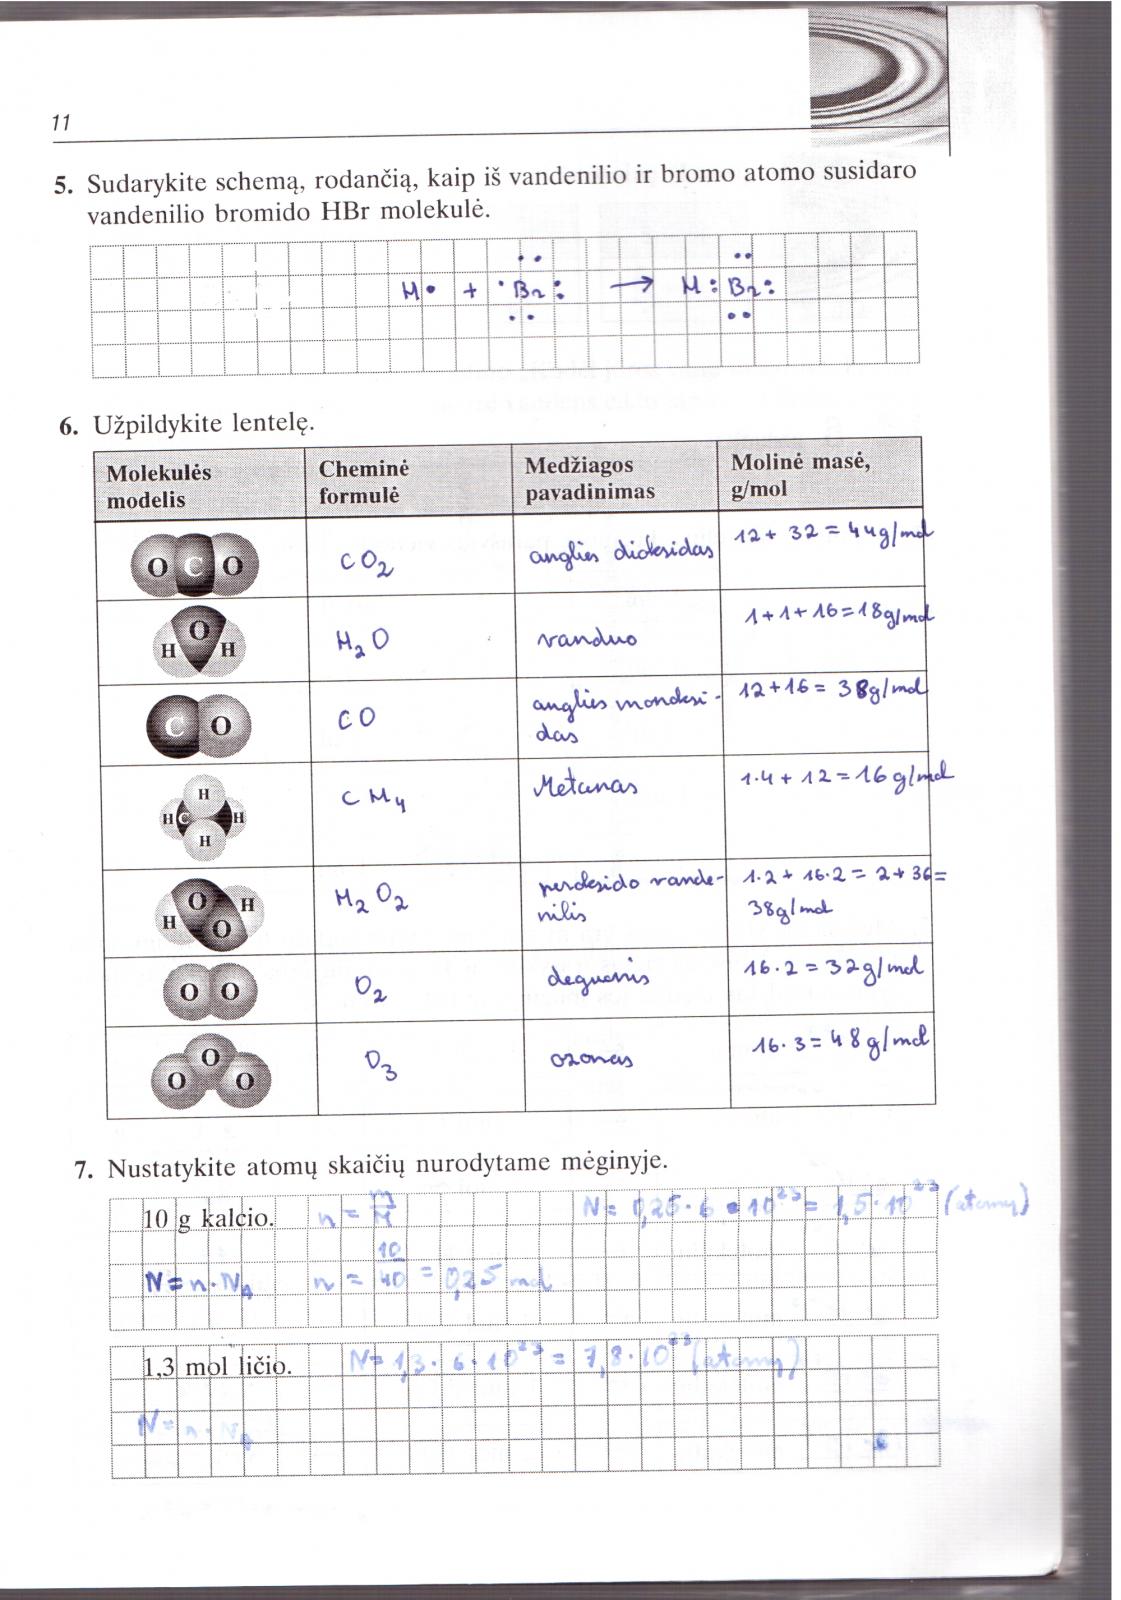 11
5. Sudarykite schemą, rodančią, kaip iš vandenilio ir bromo atomo susidaro
vandenilio bromido HBr molekulė.
H• + •Br: → H:Br:
6. Užpildykite lentelę.
Molekulės modelis Cheminė formulė Medžiagos pavadinimas Molinė masė, g/mol
O C O CO₂ anglies dioksidas 12 + 32 = 44g/mol
H O H H₂O vanduo 1+1+16=18g/mol
C O CO anglies monoksi-
das 12+16= 38g/mol
H H C H H CH₄ Metanas 1·4 + 12 = 16 g/mol
H O O H H₂O₂ peroksido vande-
nilis 1·2 + 16·2 = 2+36=
38g/mol
O O O₂ deguonis 16·2 = 32g/mol
O O O O₃ ozonas 16·3 = 48g/mol
7. Nustatykite atomų skaičių nurodytame mėginyje.
10 g kalcio. n = m/M N = 0,25·6·10²³ = 1,5·10²³ (atomų)
N = n·N_A n = 10/40 = 0,25 mol
1,3 mol ličio. N= 1,3·6·10²³ = 7,8·10²³ (atomų)
N = n·N_A